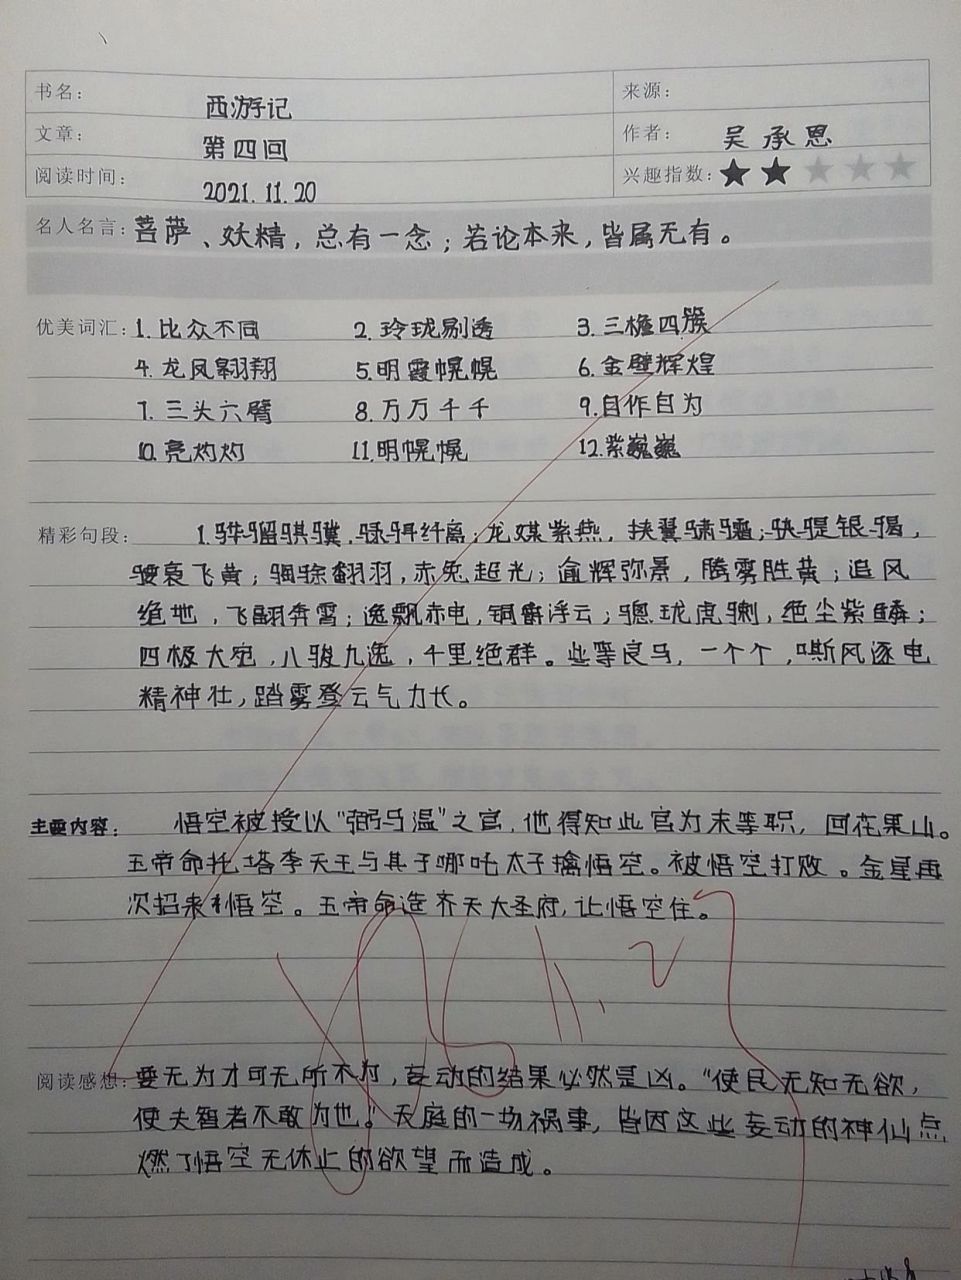 书名： 西游记 来源：
文章： 第四回 作者： 吴承恩
阅读时间： 2021.11.20 兴趣指数：★★★★★
名人名言：菩萨、妖精，总有一念；若论本来，皆属无有。
优美词汇：1.比众不同 2.玲珑剔透 3.三檐四簇
4.龙凤翱翔 5.明霞幌幌 6.金壁辉煌
7.三头六臂 8.万万千千 9.自作自为
10.亮灼灼 11.明幌幌 12.紫巍巍
精彩句段： 1.骅骝骐骥，騄駬纤离；龙媒紫燕，挟翼骕骦；駃騠银騔，
騕褭飞黄；騊駼翻羽，赤兔超光；逾辉弥景，腾雾胜黄；追风
绝地，飞翮奔霄；逸飘赤电，铜爵浮云；骢珑虎騼，绝尘紫鳞；
四极大宛，八骏九逸，千里绝群。些等良马，一个个，嘶风逐电
精神壮，踏雾登云气力长。
主要内容： 悟空被授以“弼马温”之官，他得知此官为末等职，回花果山。
玉帝命托塔李天王与其子哪吒太子擒悟空。被悟空打败。金星再
次招来悟空。玉帝命造齐天大圣府，让悟空住。
阅读感想：要无为才可无所不为，妄动的结果必然是凶。“使民无知无欲，
使夫智者不敢为也。”天庭的一场祸事，皆因这些妄动的神仙点
燃了悟空无休止的欲望而造成。